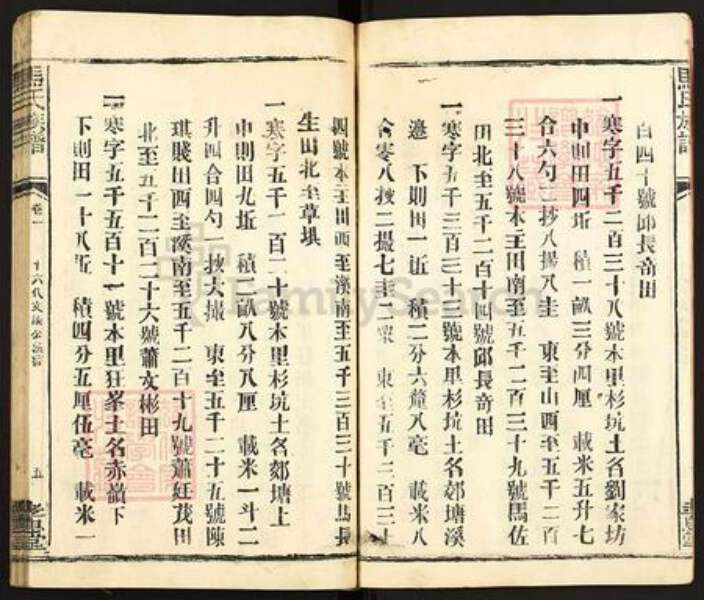 百四十號邱長奇田
一寒字五千二百三十八號本里杉坑土名劉家坊
中則田四坵 積一畝三分四厘 載米五升七
合六勺二抄八撮八圭 東至山西至五千二百
三十八號本主田南至五千二百三十九號馬佐
田北至五千二百十四號邱長奇田
一寒字五千三百三十三號本里杉坑土名郊塘溪
邊 下則田一坵 積二分六釐八毫 載米八
合零八抄二撮七圭二粟 東至五千三百三十
四號本主田西至溪南至五千三百三十號馬長
生田北至草埧
一寒字五千一百二十號本里杉坑土名郊塘上
中則田九坵 積二畝八分八厘 載米一斗二
升四合四勺 抄六撮 東至五千二十五號陳
琪賤田西至溪南至五千二百十九號蕭廷茂田
北至五千二百二十六號蕭文彬田
一寒字五千五百十一號本里狂峯土名赤嶺下
下則田一十八坵 積四分五厘伍毫 載米一
馬氏族譜
卷一
五
馬氏族譜
FamilySearch